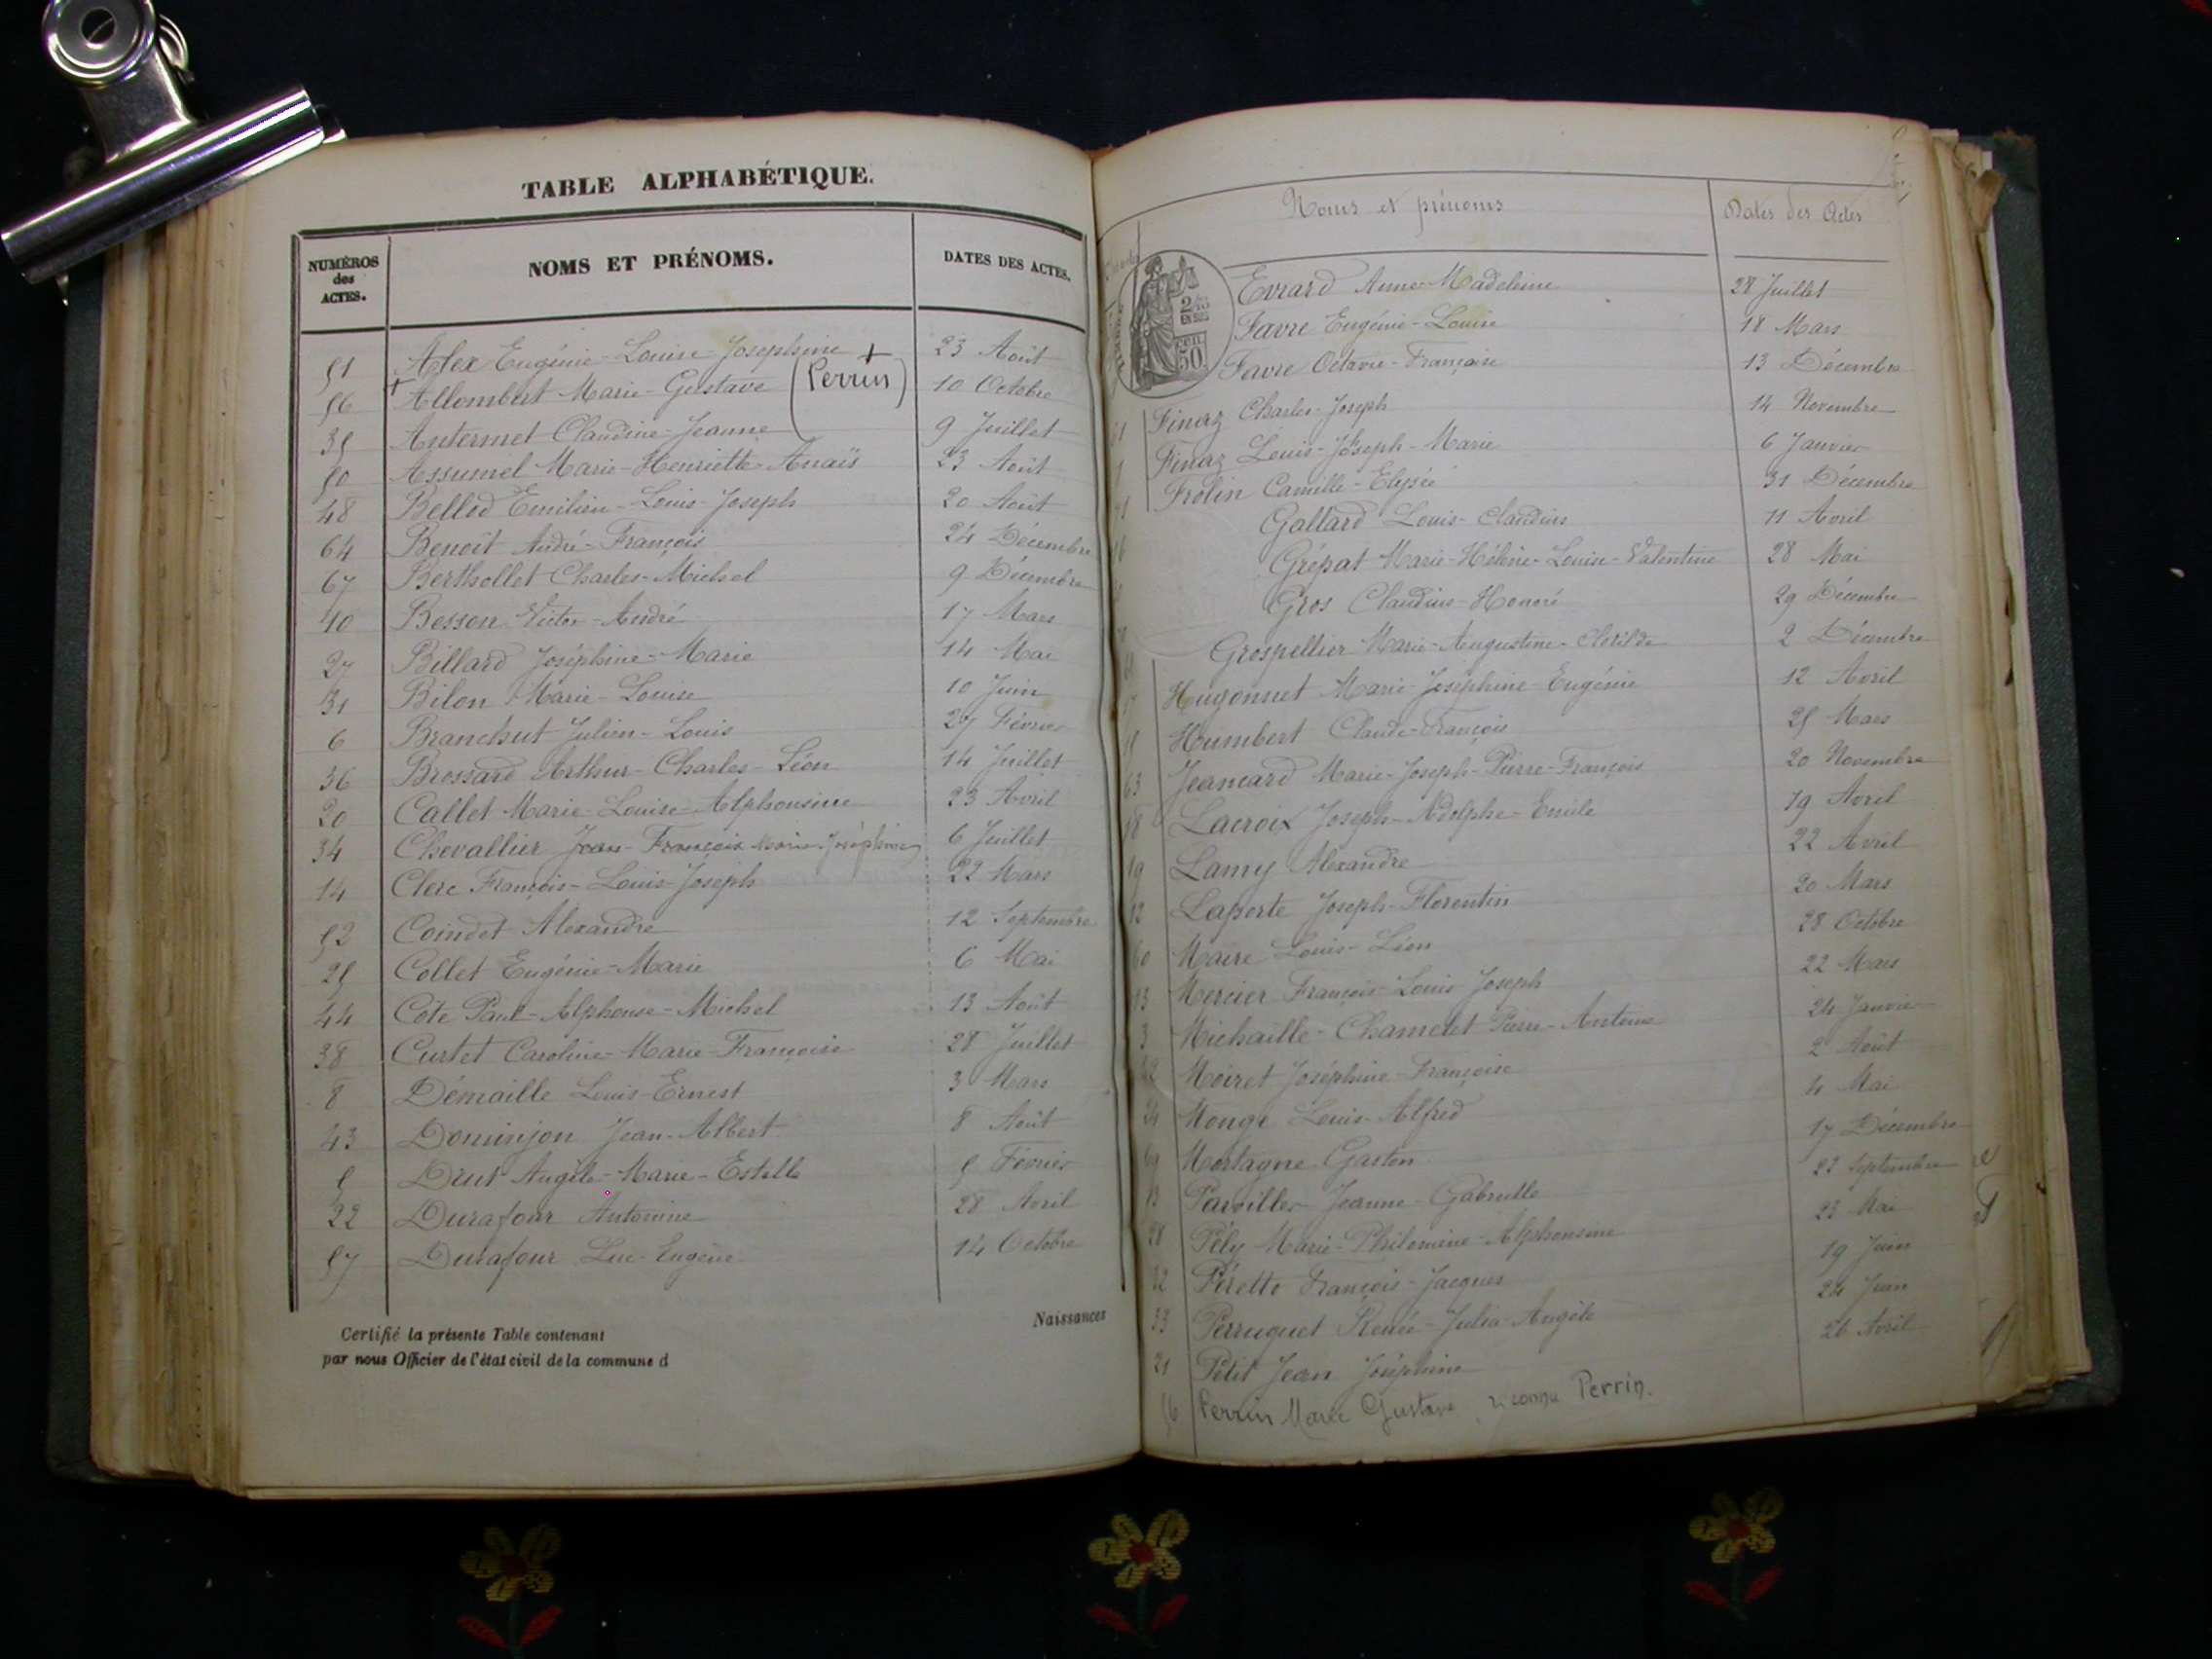 TABLE ALPHABÉTIQUE.
NUMÉROS des ACTES. NOMS ET PRÉNOMS. DATES DES ACTES.
51 Alex Eugénie-Louise-Josephine + 23 Août
56 + Allombert Marie-Gustave (Perrin) 10 Octobre
35 Antermet Claudine-Jeanne 9 Juillet
50 Assumel Marie-Henriette-Anaïs 23 Août
48 Bellod Emilien-Louis-Joseph 20 Août
64 Benoît André-François 24 Décembre
67 Berthollet Charles-Michel 9 Décembre
40 Besson Victor-André 17 Mars
27 Billard Joséphine-Marie 14 Mai
31 Bilon Marie-Louise 10 Juin
6 Branchut Julien-Louis 27 Février
36 Brossard Arthur-Charles-Léon 14 Juillet
20 Callet Marie-Louise-Alphonsine 23 Avril
34 Chevallier Jean-François Marie-Joséphine 6 Juillet
14 Clerc François-Louis-Joseph 22 Mars
52 Coindet Alexandre 12 Septembre
25 Collet Eugénie-Marie 6 Mai
44 Côte Paul-Alphonse-Michel 13 Août
38 Curtet Caroline-Marie-Françoise 28 Juillet
8 Démaille Louis-Ernest 3 Mars
43 Dominjon Jean-Albert 8 Août
5 Drut Angèle-Marie-Estelle 5 Février
22 Durafour Antonine 28 Avril
57 Durafour Luc-Eugène 14 Octobre
Naissances
Certifié la présente Table contenant
par nous Officier de l'état civil de la commune d
Noms et prénoms Dates des Actes
2/10 EN SUS
50 CEN.
Evrard Anne-Madeleine 28 Juillet
Favre Eugénie-Louise 18 Mars
Favre Octavie-Françoise 13 Décembre
61 Finaz Charles-Joseph 14 Novembre
1 Finaz Louis-Joseph-Marie 6 Janvier
71 Frolin Camille-Elysée 31 Décembre
16 Gallard Louis-Claudius 11 Avril
Grépat Marie-Hélène-Louise-Valentine 28 Mai
Gros Claudius-Honoré 29 Décembre
Grospellier Marie-Augustine-Clotilde 2 Décembre
17 Hugonnet Marie-Joséphine-Eugénie 12 Avril
15 Humbert Claude-François 25 Mars
63 Jeancard Marie-Joseph-Pierre-François 20 Novembre
18 Lacroix Joseph-Adolphe-Emile 19 Avril
19 Lamy Alexandre 22 Avril
12 Laporte Joseph-Florentin 20 Mars
60 Maire Louis-Léon 28 Octobre
13 Mercier François-Louis-Joseph 22 Mars
3 Michaille-Chamelet Pierre-Antoine 24 Janvier
42 Moiret Joséphine-Françoise 2 Août
24 Monge Louis-Alfred 4 Mai
69 Mortagne Gaston 17 Décembre
53 Parviller Jeanne-Gabrielle 23 Septembre
28 Pély Marie-Philomène-Alphonsine 23 Mai
32 Péretto François-Jacques 19 Juin
33 Perruquet Renée-Julia-Angèle 24 Juin
21 Petit Jean Joséphine 26 Avril
56 Perrin Marie Gustave, reconnu Perrin.